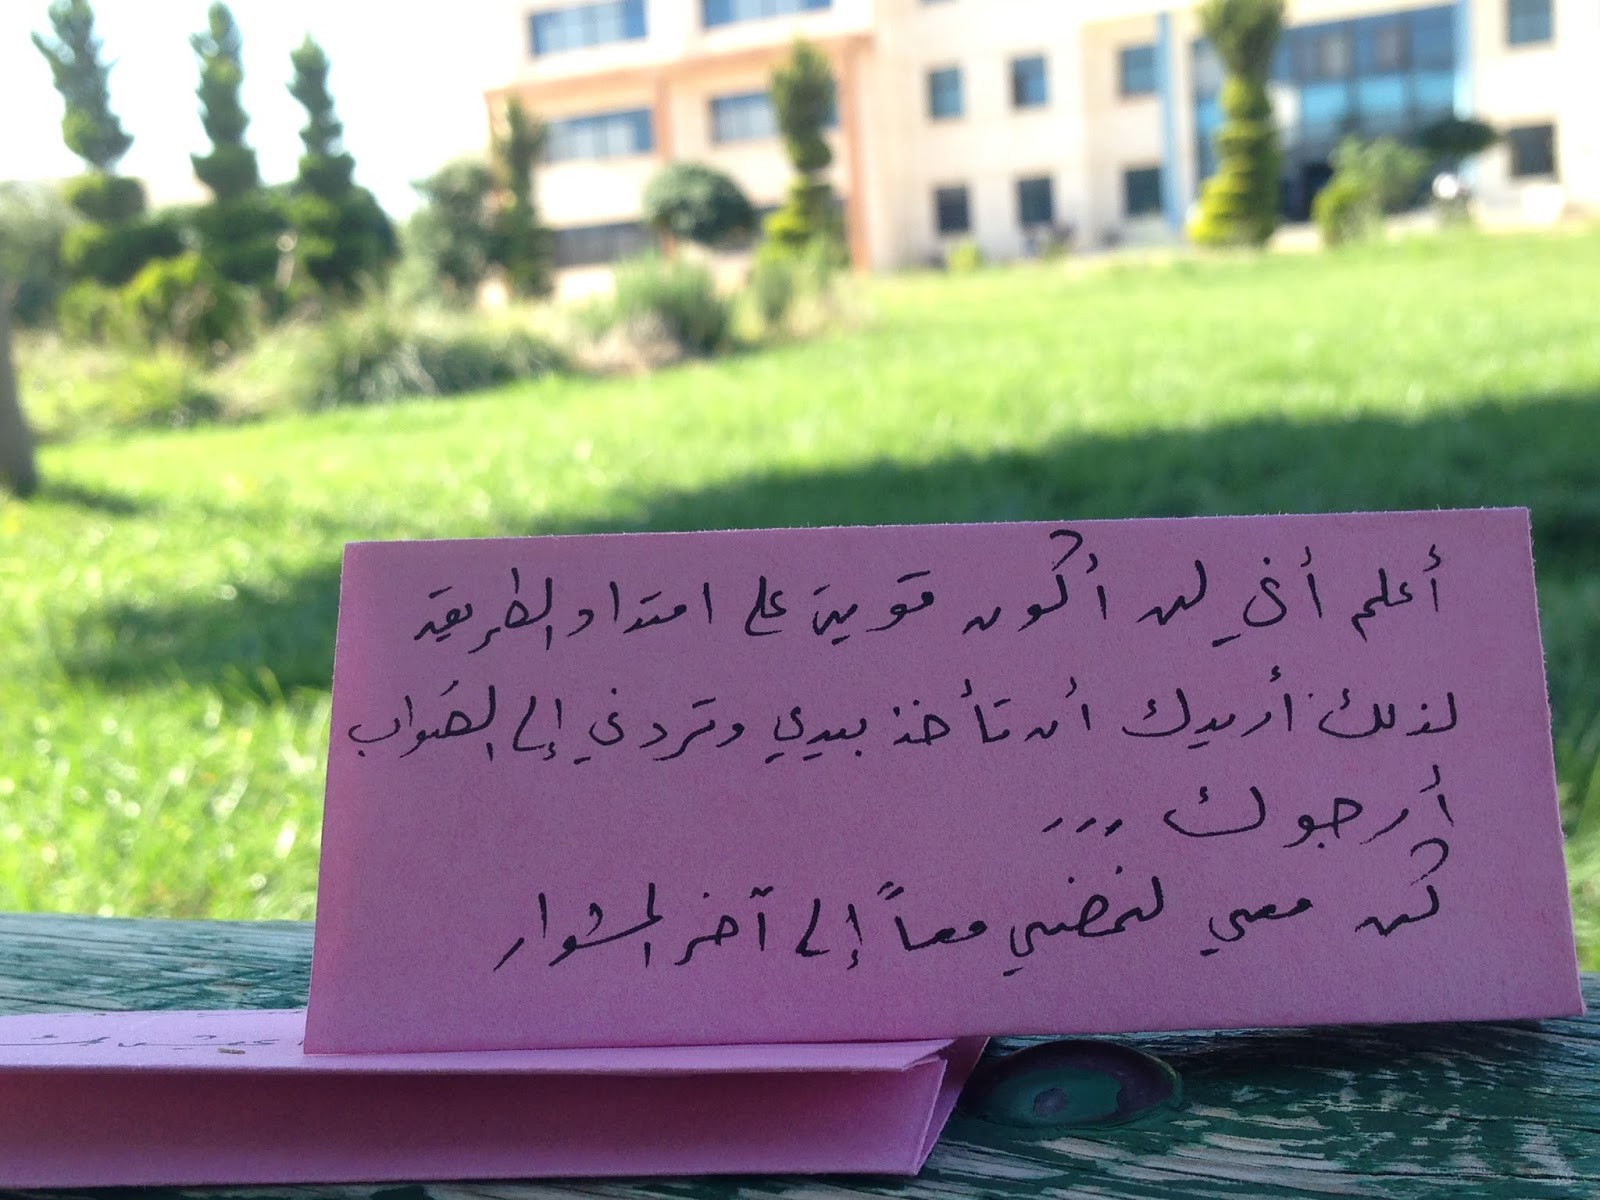 أعلم أني لن أكون قوية على امتداد الطريق
لذلك أريدك أن تأخذ بيدي وتردني إلى الصَواب
أرجوك ...
كن معي لنمضي معاً إلى آخر المشوار